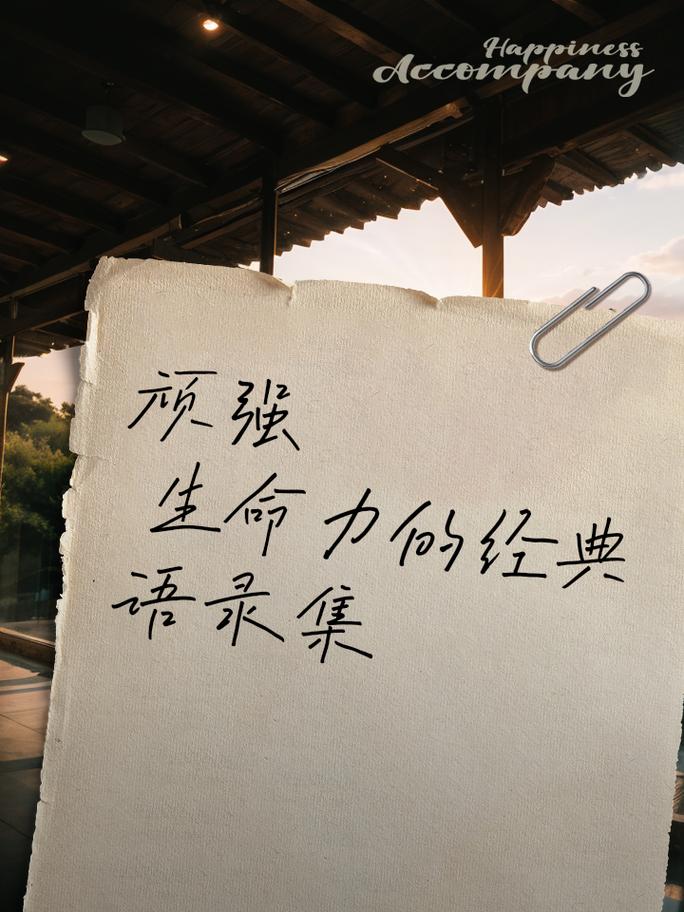 Happiness
Accompany
顽强
生命力的经典
语录集